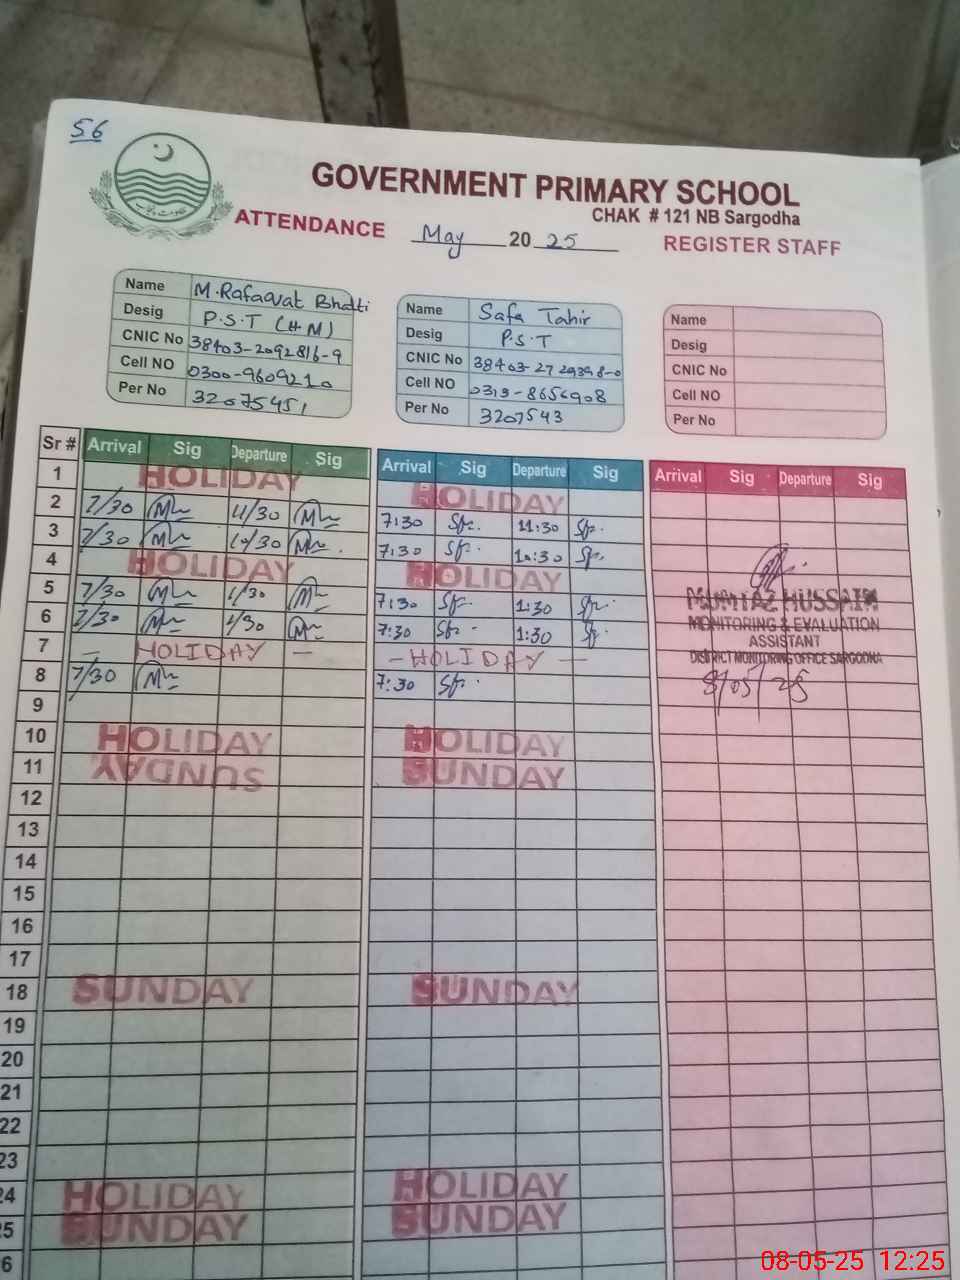 56
GOVERNMENT PRIMARY SCHOOL
CHAK # 121 NB Sargodha
ATTENDANCE May 2025 REGISTER STAFF
Name M.Rafaqat Bhatti
Desig P.S.T (H M)
CNIC No 38403-2092816-9
Cell NO 0300-9609210
Per No 32075451
Name Safa Tahir
Desig P.S.T
CNIC No 38403-2729398-0
Cell NO 0313-8656908
Per No 3207543
Name
Desig
CNIC No
Cell NO
Per No
Sr # Arrival Sig Departure Sig Arrival Sig Departure Sig Arrival Sig Departure Sig
1 HOLIDAY HOLIDAY
2 7/30 11/30 7:30 11:30
3 7/30 10/30 7:30 10:30
4 HOLIDAY HOLIDAY
5 7/30 1/30 7:30 1:30
6 7/30 1/30 7:30 1:30
7 – HOLIDAY – – HOLIDAY –
8 7/30 7:30
MUMTAZ HUSSAIN
MONITORING & EVALUATION
ASSISTANT
DISTRICT MONITORING OFFICE SARGODHA
8/05/25
9
10 HOLIDAY HOLIDAY
11 SUNDAY SUNDAY
12
13
14
15
16
17
18 SUNDAY SUNDAY
19
20
21
22
23
24 HOLIDAY HOLIDAY
25 SUNDAY SUNDAY
6
08-05-25 12:25